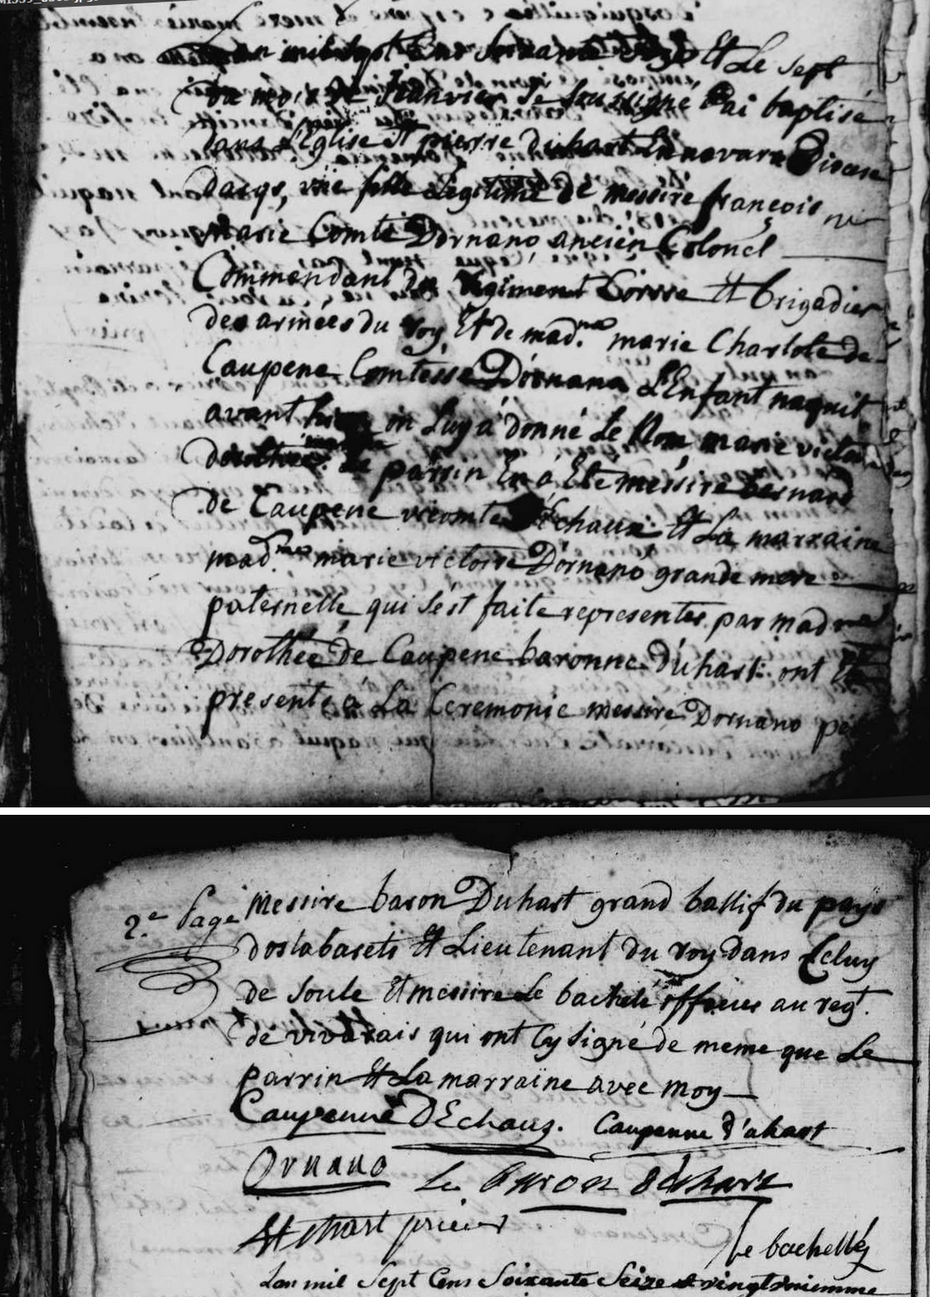 L'an mil sept Cens Soixante Seize Et Le sept
du mois de Janvier Je soussigné J'ai baptisé
dans L'Eglise St pierre duhart En navarre Diocese
dacqs, une fille Legitime de messire françois
marie Comte Dornano ancien Colonel
Commendant du Regiment Corsse Et brigadier
des armées du roy, Et de mad.me marie Charlote de
Caupene Comtesse Dornano L'Enfant naquit
avant hier on Luy á donné Le Nom marie victoire
dorothée Le parrin En á Ete messire bernard
de Caupene vicomte d'Echaux Et La marraine
mad.me marie victoire Dornano grande mere
paternelle qui s'est faite representer par madme
Dorothée de Caupene baronne d'uhart ont Eté
present á La Ceremonie messire Dornano pere
2.e page messire baron Duhart grand ballif du pays
dostabarets Et Lieutenant du roy dans Celuy
de Soule Et messire Le bachelé officier au reg.t
de vivarais qui ont Cy signé de meme que Le
parrin Et La marraine avec moy
Caupenne DEchauz. Caupenne d'uhart
Ornano Le Baron d'uhart
prieur
Le bachellé
Lan mil Sept Cens Soixante Seize et vingt